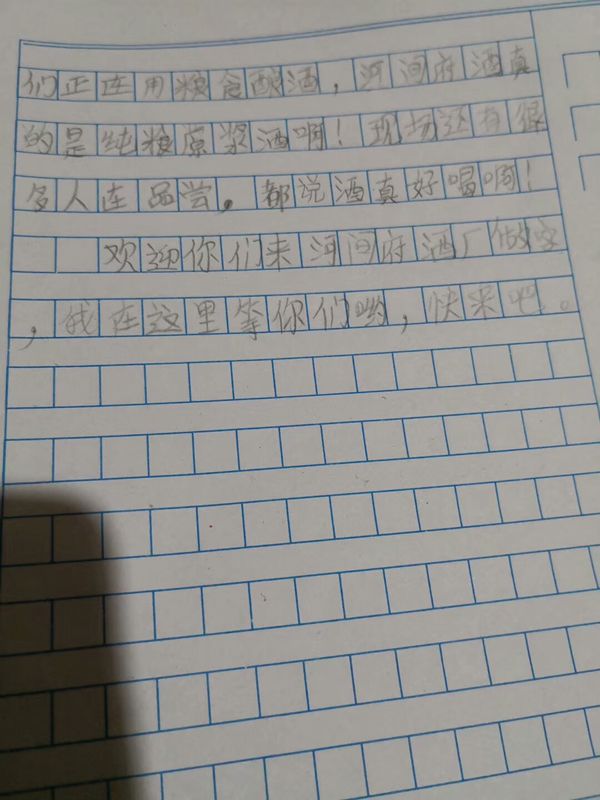 们正在用粮食酿酒，河间府酒真
的是纯粮原浆酒啊！现场还有很
多人在品尝，都说酒真好喝啊！
欢迎你们来河间府酒厂做客
，我在这里等你们哟，快来吧。